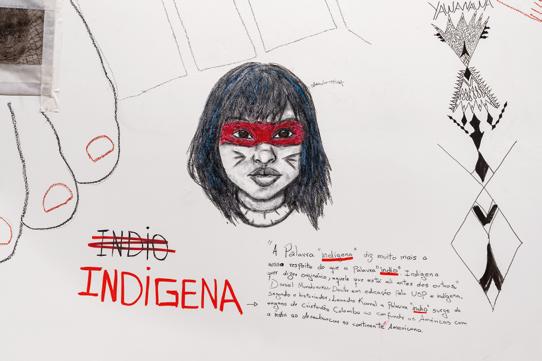 YAWANAWA
INDIO
INDÍGENA
"A Palavra "indígena" diz muito mais a
respeito do que a Palavra "índio". Indígena
quer dizer originário, aquele que está ali antes dos outros"
Daniel Munduruku, Doutor em educação pela USP e indígena,
segundo o historiador, Leandro Karnal a Palavra "índio" surge do
engano de Cristóvão Colombo ao confundir as Américas com
a Índia ao desembarcar no continente Americano.